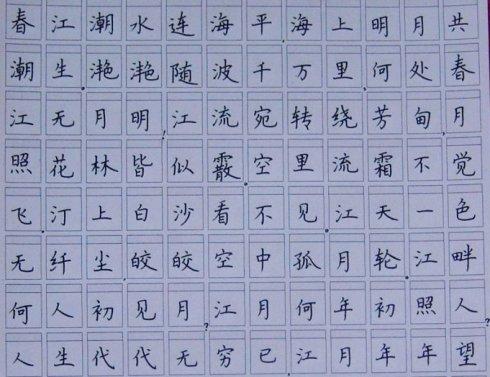 春江潮水连海平,海上明月共
潮生.滟滟随波千万里,何处春
江无月明!江流宛转绕芳甸,月
照花林皆似霰.空里流霜不觉
飞.汀上白沙看不见.江天一色
无纤尘.皎皎空中孤月轮.江畔
何人初见月?江月何年初照人?
人生代代无穷已.江月年年望